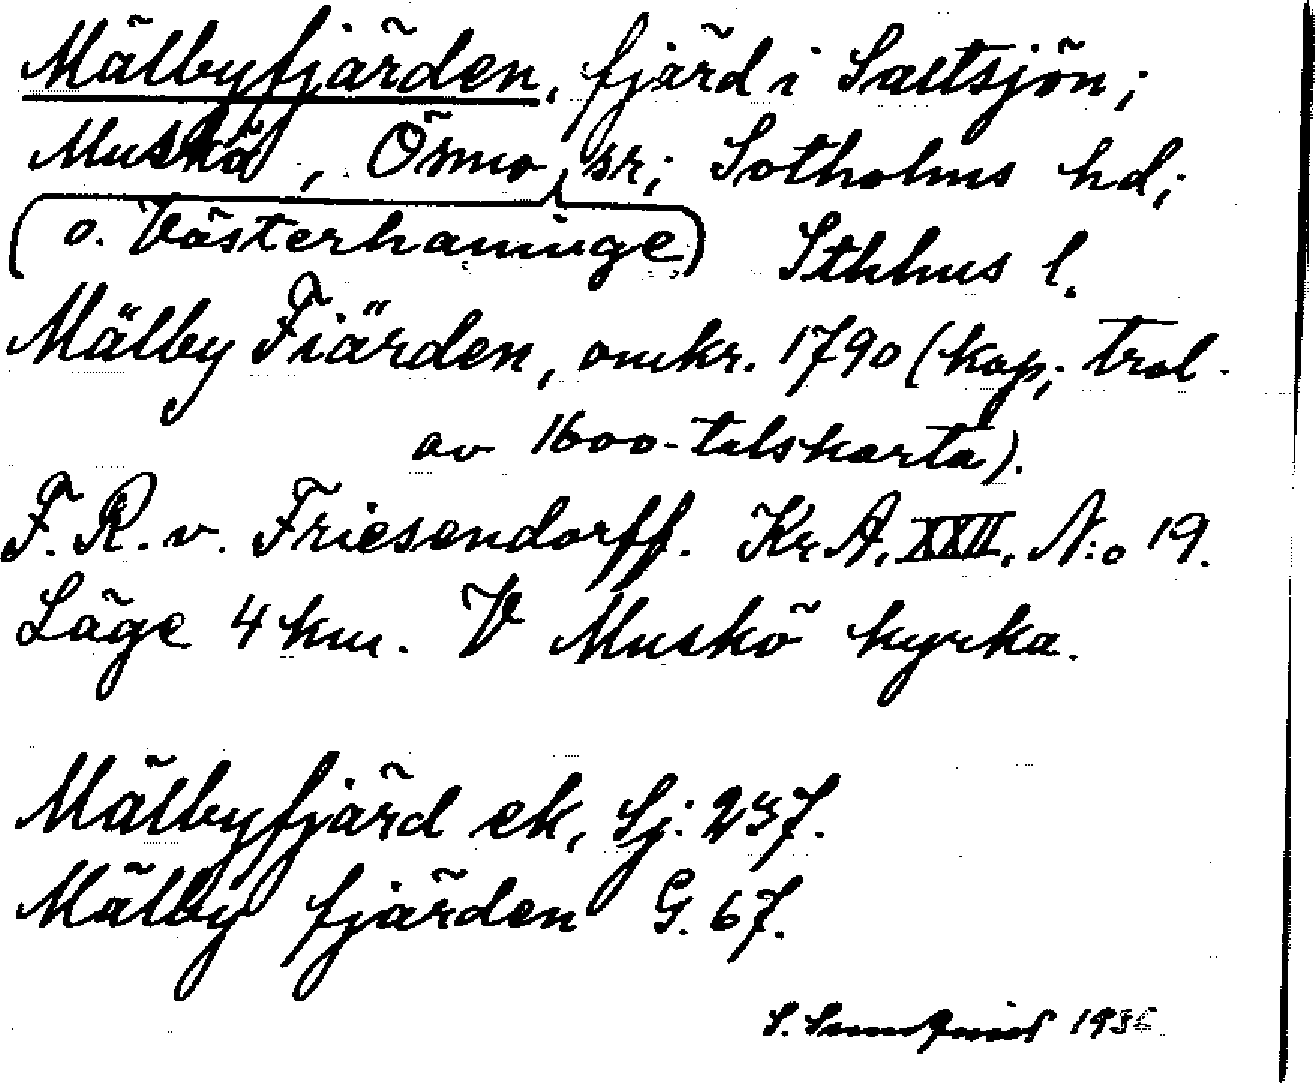 Mälbyfjärden, fjärd i Saltsjön;
Muskö, Ösmo sr; Sotholms hd;
(o. Västerhaninge) Sthlms l.
Mälby Fiärden, omkr. 1790 (kop; trol.
av 1600-talskarta).
F. R. v. Friesendorff. KrA. XXII. N:o 19.
Läge 4 km. V Muskö kyrka.
Mälbyfjärd ek, Sj: 237.
Mälby fjärden G. 67.
S.